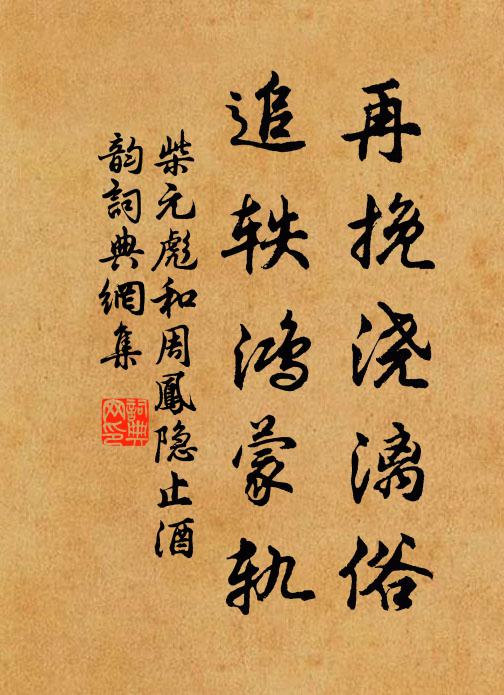 再挽浇漓俗
追轶鸿蒙轨
柴元彪和周鳳隐止酒
韵詞典網集
詞典
网印